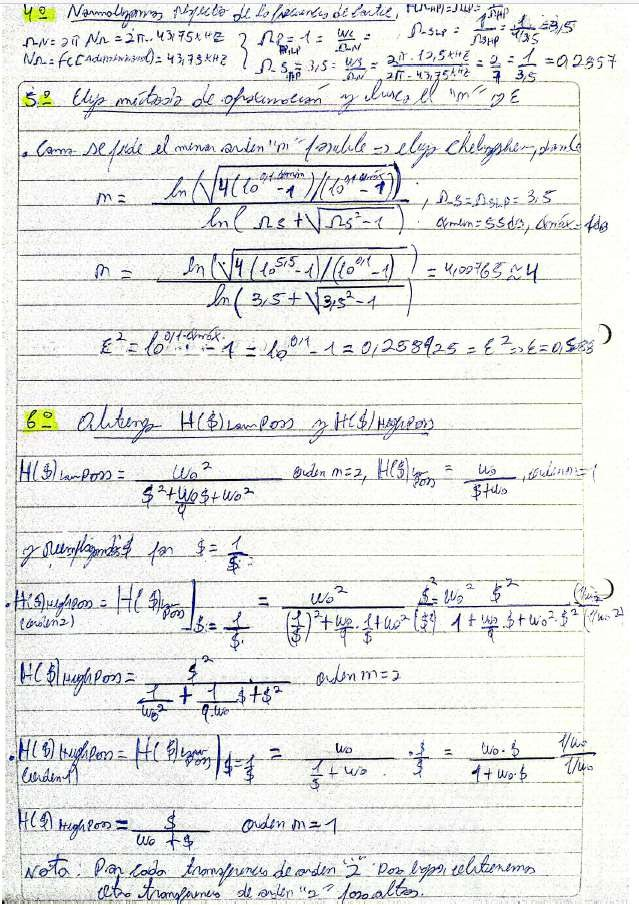 4º Normalizamos respecto de la frecuencia de corte,
Ω_N = 2π N_N = 2π · 43,75 kHz
N_N = fc (adimensional) = 43,75 kHz
Ω_P HP = 1 = Wc/Ω_N
Ω_S HP = 3,5 = Ws/Ω_N = 2π · 12,5 kHz / 2π · 43,75 kHz = 2/7 = 1/3,5 = 0,2857
Ω_S LP = 1/Ω_S HP = 1/(1/3,5) = 3,5
5º Elijo método de aproximación y busco el "m" y ε
. Como se pide el menor orden "m" posible ⇒ elijo Chebyshev, donde
m = ln(√(4(10^(0,1·αmín) - 1)/(10^(0,1·αmáx) - 1))) / ln(Ωs + √(Ωs² - 1)) ; Ωs = Ω_S LP = 3,5
αmin = 55 dB, αmáx = 1 dB
m = ln(√(4(10^5,5 - 1)/(10^0,1 - 1))) / ln(3,5 + √(3,5² - 1)) = 4,00765 ≈ 4
ε² = 10^(0,1·αmáx) - 1 = 10^0,1 - 1 = 0,258925 = ε² ⇒ ε = 0,5088
6º Obtengo H($) Low Pass y H($) High Pass
H($) Low Pass = w₀² / ($² + w₀/q $ + w₀²) orden m=2, H($) Low Pass = w₀ / ($ + w₀), orden m=1
y reemplazando $ por $ = 1/$
. H($) High Pass (orden 2) = H($) Low Pass | $ = 1/$ = w₀² / ((1/$)² + w₀/q · 1/$ + w₀²) ($²/$²) = w₀² $² / (1 + w₀/q · $ + w₀² · $²) (1/w₀²)/(1/w₀²)
H($) High Pass = $² / (1/w₀² + 1/(q·w₀) $ + $²) orden m=2
. H($) High Pass (orden 1) = H($) Low Pass | $ = 1/$ = w₀ / (1/$ + w₀) · $/$ = w₀·$ / (1 + w₀·$) (1/w₀)/(1/w₀)
H($) High Pass = $ / (w₀ + $) orden m=1
Nota: Por cada transferencia de orden "2" Pasa bajos obtenemos
otra transferencia de orden "2" pasa altos.